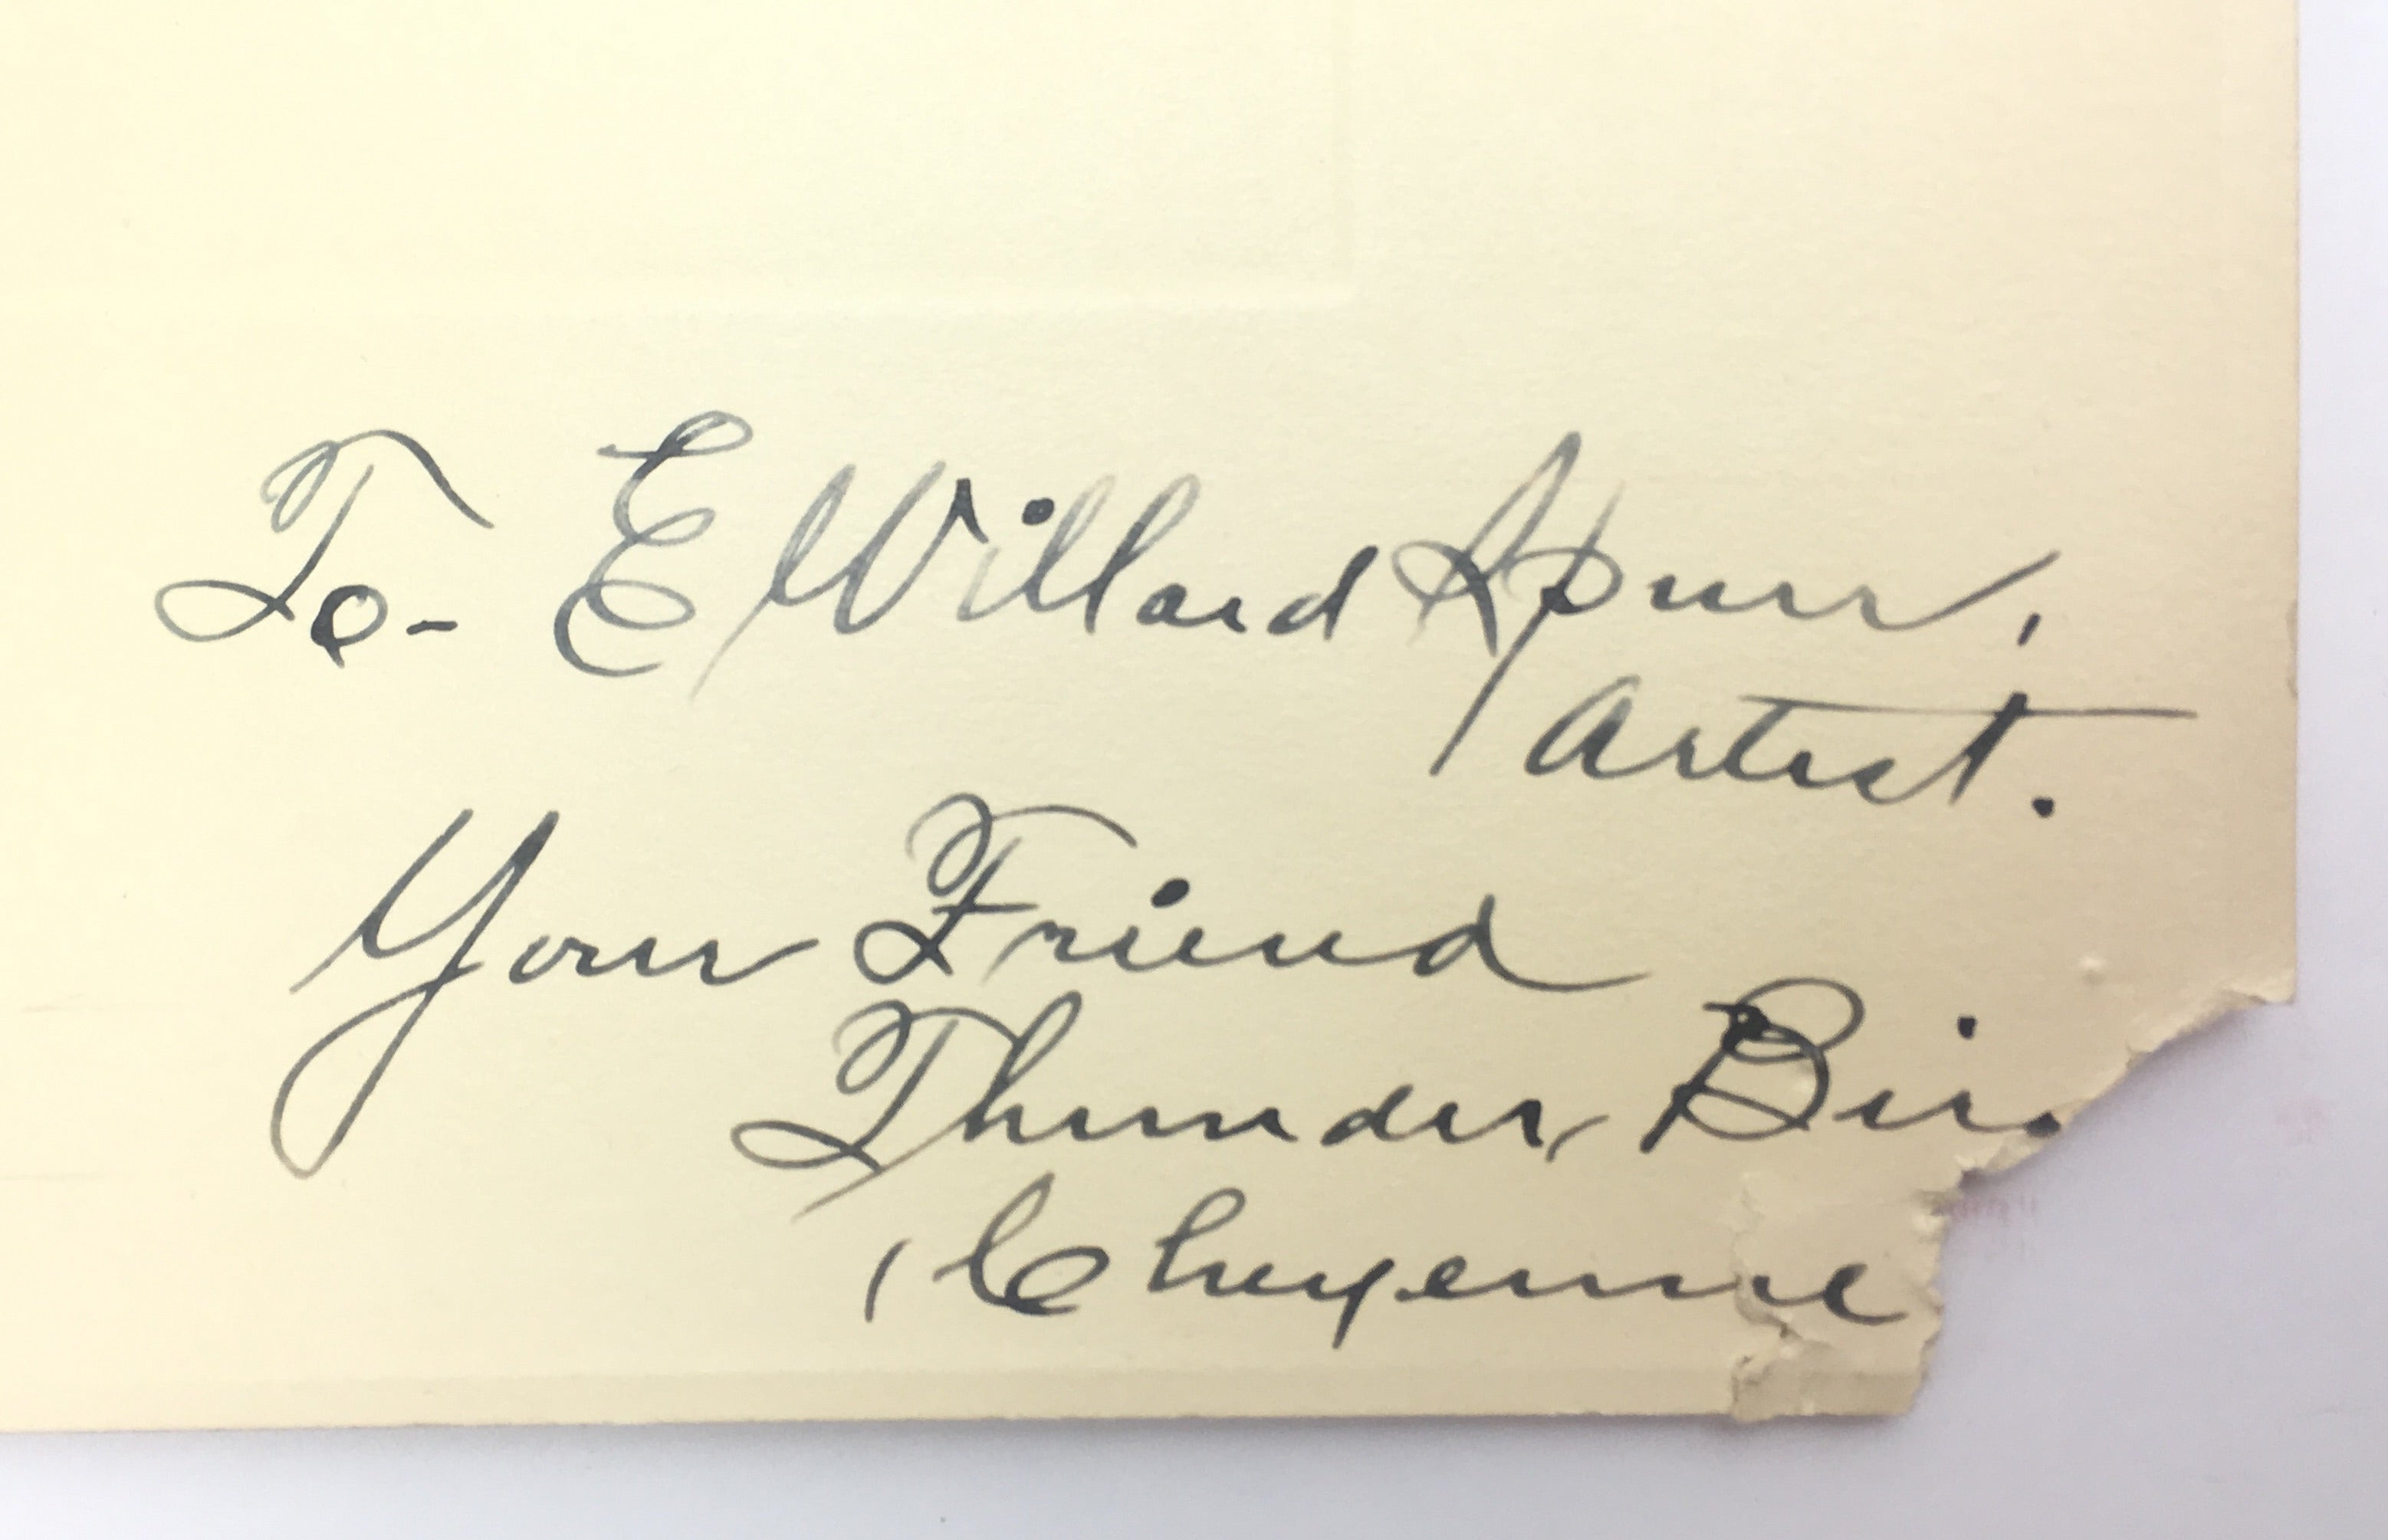 To- E Willard Spurr,
Artist.
Your Friend
Thunder Bir
(Cheyenne